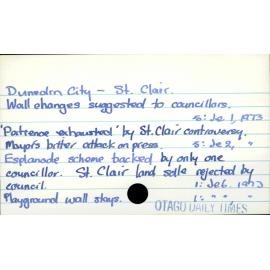 Dunedin City - St. Clair.
Wall changes suggested to councillors.
5: Je 1, 1973
'Patience exhausted' by St. Clair controversy.
Mayor's bitter attack on press. 5: Je 2, "
Esplanade scheme backed by only one
councillor. St. Clair land sale rejected by
council. 1: Je 6, 1973
Playground wall stays. 1: " " "
OTAGO DAILY TIMES